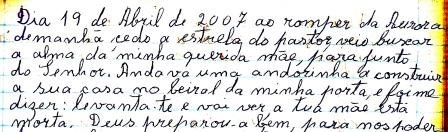 Dia 19 de Abril de 2007 ao romper da Aurora
demanhã cedo a estrela do pastor veio buscar
a alma da minha querida mãe, para junto
do Senhor. Andava uma andorinha a construir
a sua casa no beiral da minha porta, e foi-me
dizer: levanta-te e vai ver a tua mãe está
morta. Deus preparou-a bem, para nos poder